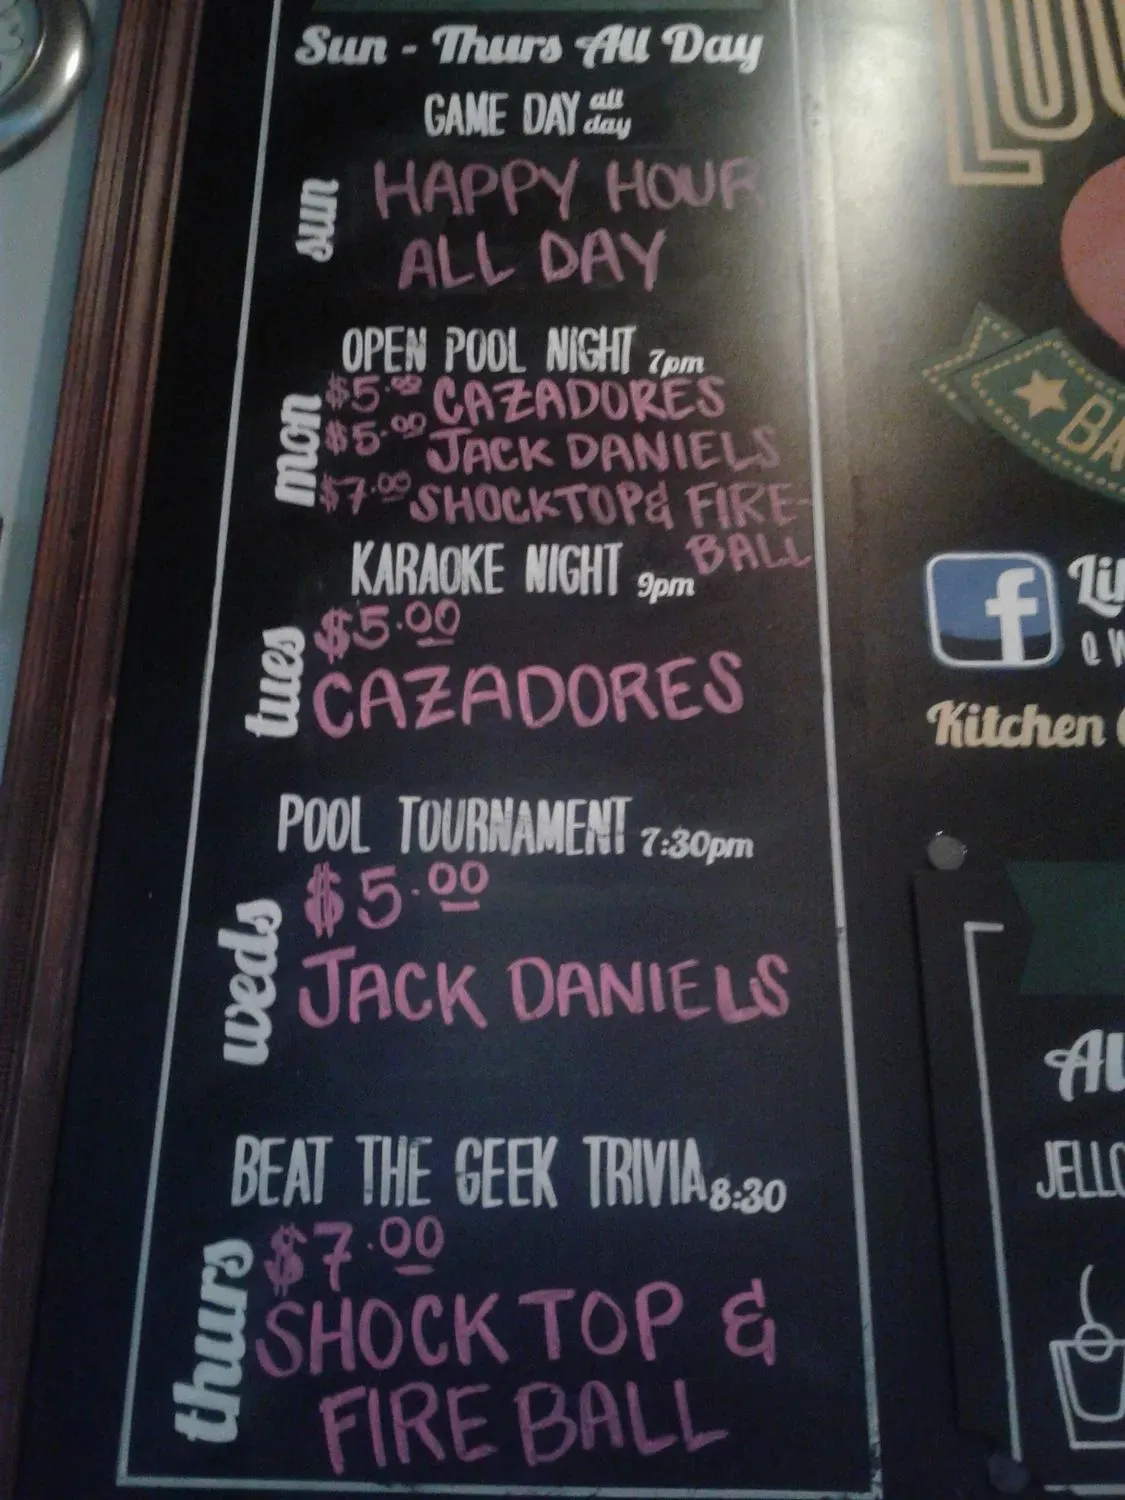 Sun - Thurs All Day
GAME DAY all day
sun
HAPPY HOUR
ALL DAY
OPEN POOL NIGHT 7pm
mon
$5.00 CAZADORES
$5.00 JACK DANIELS
$7.00 SHOCKTOP & FIRE-
BALL
KARAOKE NIGHT 9pm
tues
$5.00
CAZADORES
POOL TOURNAMENT 7:30pm
weds
$5.00
JACK DANIELS
BEAT THE GEEK TRIVIA 8:30
thurs
$7.00
SHOCK TOP &
FIRE BALL
f
Kitchen